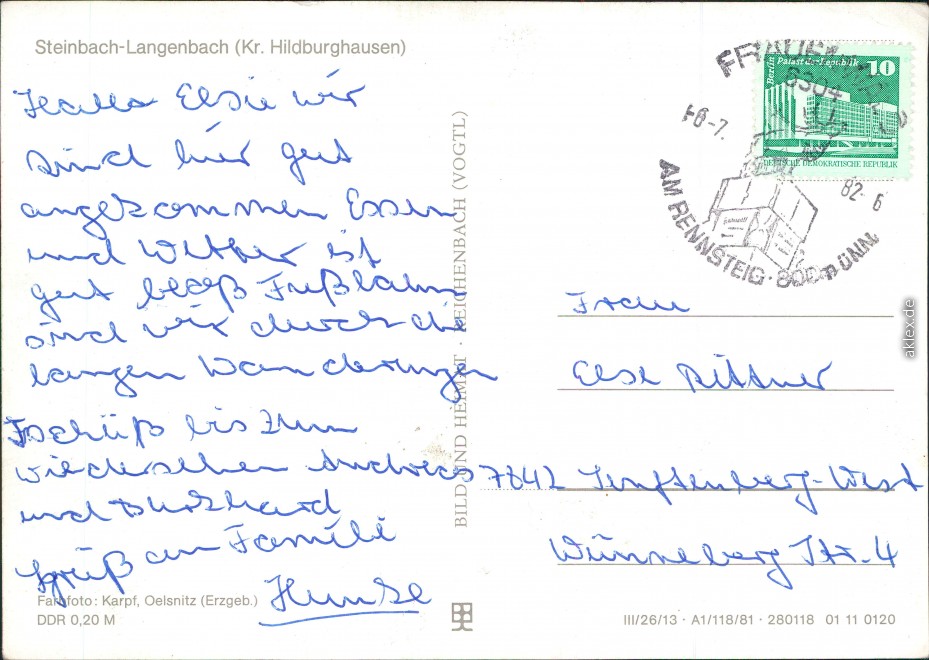 Steinbach-Langenbach (Kr. Hildburghausen)
Hallo Elsie wir
sind hier gut
angekommen Essen
und Wetter ist
gut bloß Fußlahm
sind wir durch die
langen Wanderungen
Tschüß bis zum
wiedersehen Andreas
und Burkhard
Gruß an Famili
Hunke
Farbfoto: Karpf, Oelsnitz (Erzgeb.)
DDR 0,20 M
BILD UND HEIMAT · REICHENBACH (VOGTL)
Berlin Palast der Republik 10
DEUTSCHE DEMOKRATISCHE REPUBLIK
6304
-6-7.
82-6
AM RENNSTEIG · 800m ÜNN
Frau
Else Dittner
7842 Senftenberg-West
Wünneberg Str. 4
III/26/13 · A1/118/81 · 280118 01 11 0120
aklex.de